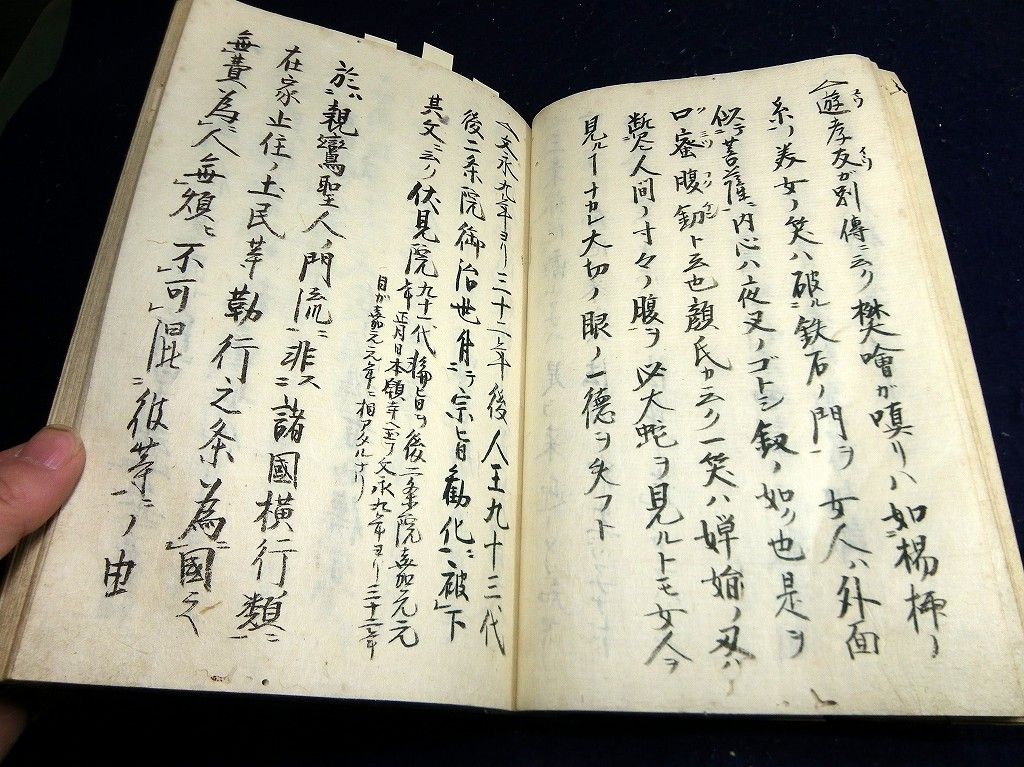 遊孝友ガ別傳云ク樊噲ガ嗔リハ如楊柳ノ
糸ノ美女ノ笑ハ破ル鉄石ノ門ヲ女人ハ外面
似テ菩薩ニ内心ハ夜叉ノゴトシ釼ノ如ク也是ヲ
口蜜腹釼ト云也顔氏カ云ク一笑ハ
断ツ人間ノ寸々ノ腹ヲ以大蛇ヲ見ルトモ女人ヲ
見ルコトナカレ大切ノ眼ノ二徳ヲ失フト
文永九年ヨリ三十二年後人王九十三代
後二条院御治世身ニテ宗旨勸化ニ被下
其文ニ云ク伏見院九十一代綸旨ヲ後二条院嘉元元
年正月日本願寺ヘ至ツ文永九年ヨリ三十二年
目ガ嘉元元年ニ相アタルナリ
於ハ親鸞聖人ノ門流ニ非ス諸國横行ノ類ニ
在家止住ノ土民等勤行之条為國ニ
無費為人ニ無煩不可混彼等ニノ由